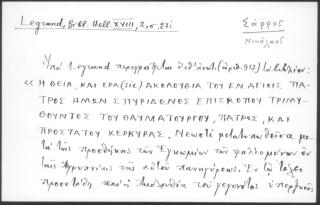 Legrand, Bibl. Hell. XVIII, 2, σ, 27i.
Σάρρος
Νικόλαος
Ὑπὸ Legrand περιγράφεται (ἀριθ. 917) τὸ βιβλίον:
«Η ΘΕΙΑ, ΚΑΙ ΕΡΑ (sic) ΑΚΟΛΟΥΘΙΑ ΤΟΥ ΕΝ ΑΓΙΟΙΣ ΠΑ-
ΤΡΟΣ ΗΜΩΝ ΣΠΥΡΙΔΩΝΟΣ ΕΠΙΣΚΟΠΟΥ ΤΡΙΜΥ-
ΘΟΥΝΤΟΣ ΤΟΥ ΘΑΥΜΑΤΟΥΡΓΟΥ, ΠΑΤΡΟΣ, ΚΑΙ
ΠΡΟΣΤΑΤΟΥ ΚΕΡΚΥΡΑΣ, Νεωστὶ μετατυπωθεῖσα με-
τὰ τῆς προσθήκης τῶν Ἐγκωμίων τῶν ψαλλομένων ἐν
ταῖς Ἀγρυπνίαις τῆς αὐτοῦ πανηγύρεως. Ἐν ᾧ τέλει
προσετέθη καὶ ἡ Ἀκολουθία τοῦ γεγονότος ὑπερφυοῦς